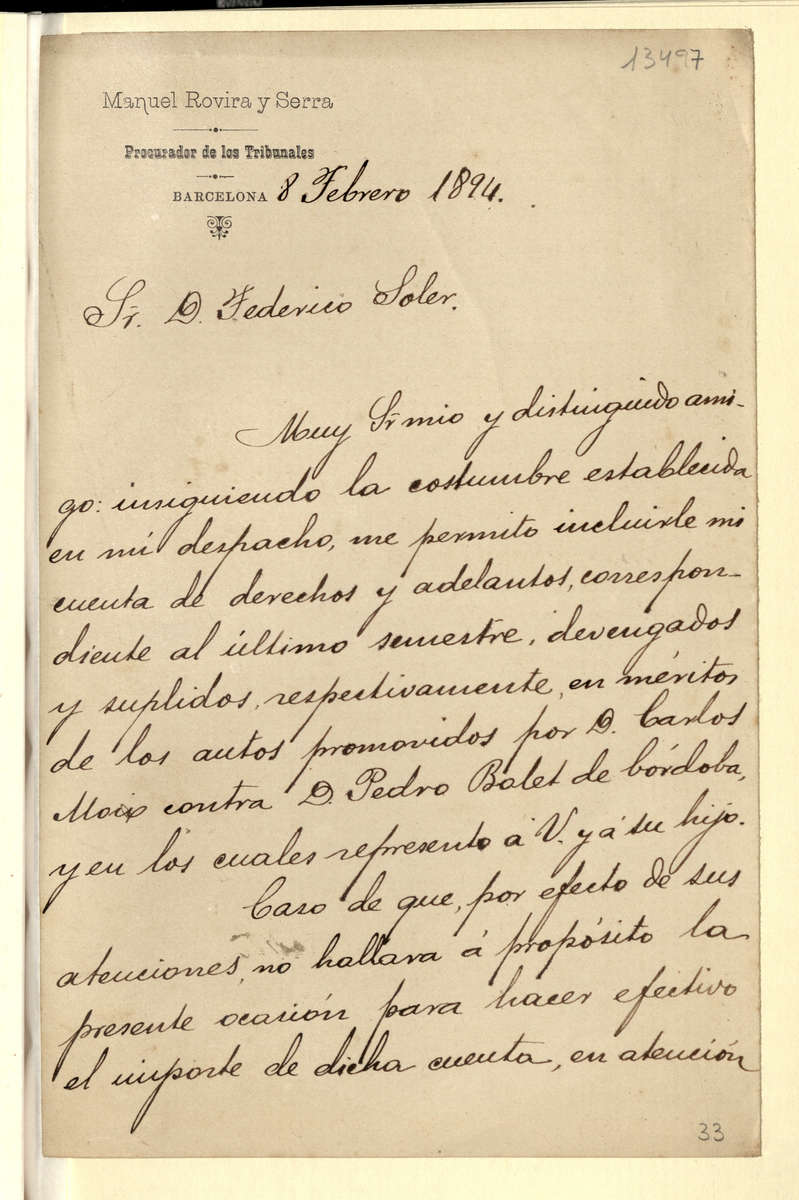 13497
Manuel Rovira y Serra
Procurador de los Tribunales
BARCELONA 8 Febrero 1894.
Sr. D. Federico Soler.
Muy Sr mio y distinguido ami-
go: insiguiendo la costumbre establecida
en mi despacho, me permito incluirle mi
cuenta de derechos y adelantos, correspon-
diente al último semestre, devengados
y suplidos, respectivamente, en méritos
de los autos promovidos por D. Carlos
Moix contra D. Pedro Balet de Córdoba,
y en los cuales represento á V. y á su hijo.
Caso de que, por efecto de sus
atenciones, no hallara á propósito la
presente ocasión para hacer efectivo
el importe de dicha cuenta, en atención
33